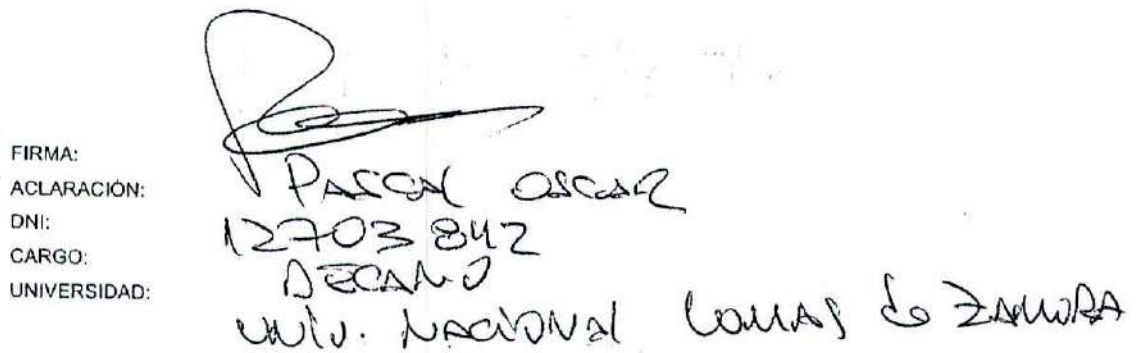 FIRMA:
ACLARACIÓN: PASCAL OSCAR
DNI: 12703842
CARGO: DECANO
UNIVERSIDAD: UNIV. NACIONAL LOMAS de ZAMORA